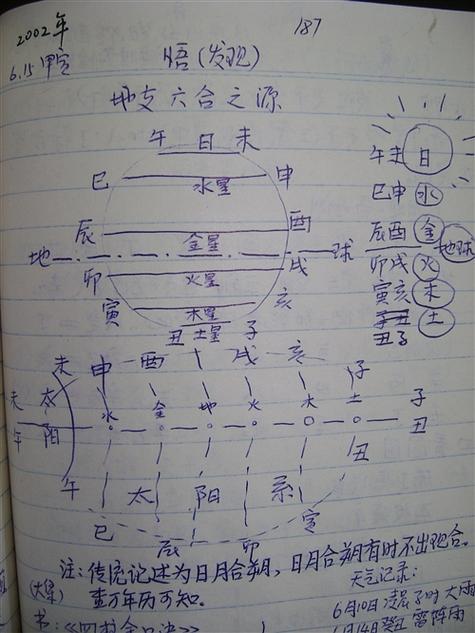 2002年
187
6.15 甲寅
悟(发现)
地支六合之源
午 日 未
巳 水星 申
辰 金星 酉
地 球
卯 火星 戌
寅 木星 亥
丑 土星 子
午未 日
巳申 水
辰酉 金
地球
卯戌 火
寅亥 木
子丑 土
丑子
未 申 酉 戌 亥 子
未 太 水 金 地 火 木 土 子
午 阳 丑
午 太 阳 系 丑
巳 辰 卯 寅
注:传统记述为日月合朔,日月合朔有时不出现合。
查万年历可知。
天气记录:
6月10日 凌晨子时 大雨
6月14日癸丑 雷阵雨